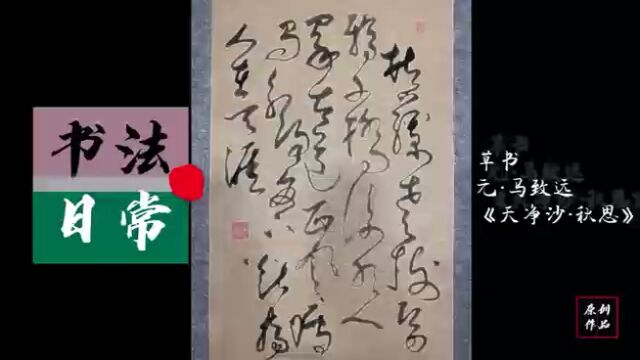 书法
日常
枯藤老树昏
鸦小桥流水人
家古道西风瘦
马夕阳西下断肠
人在天涯
草书
元·马致远
《天净沙·秋恩》
原创
作品